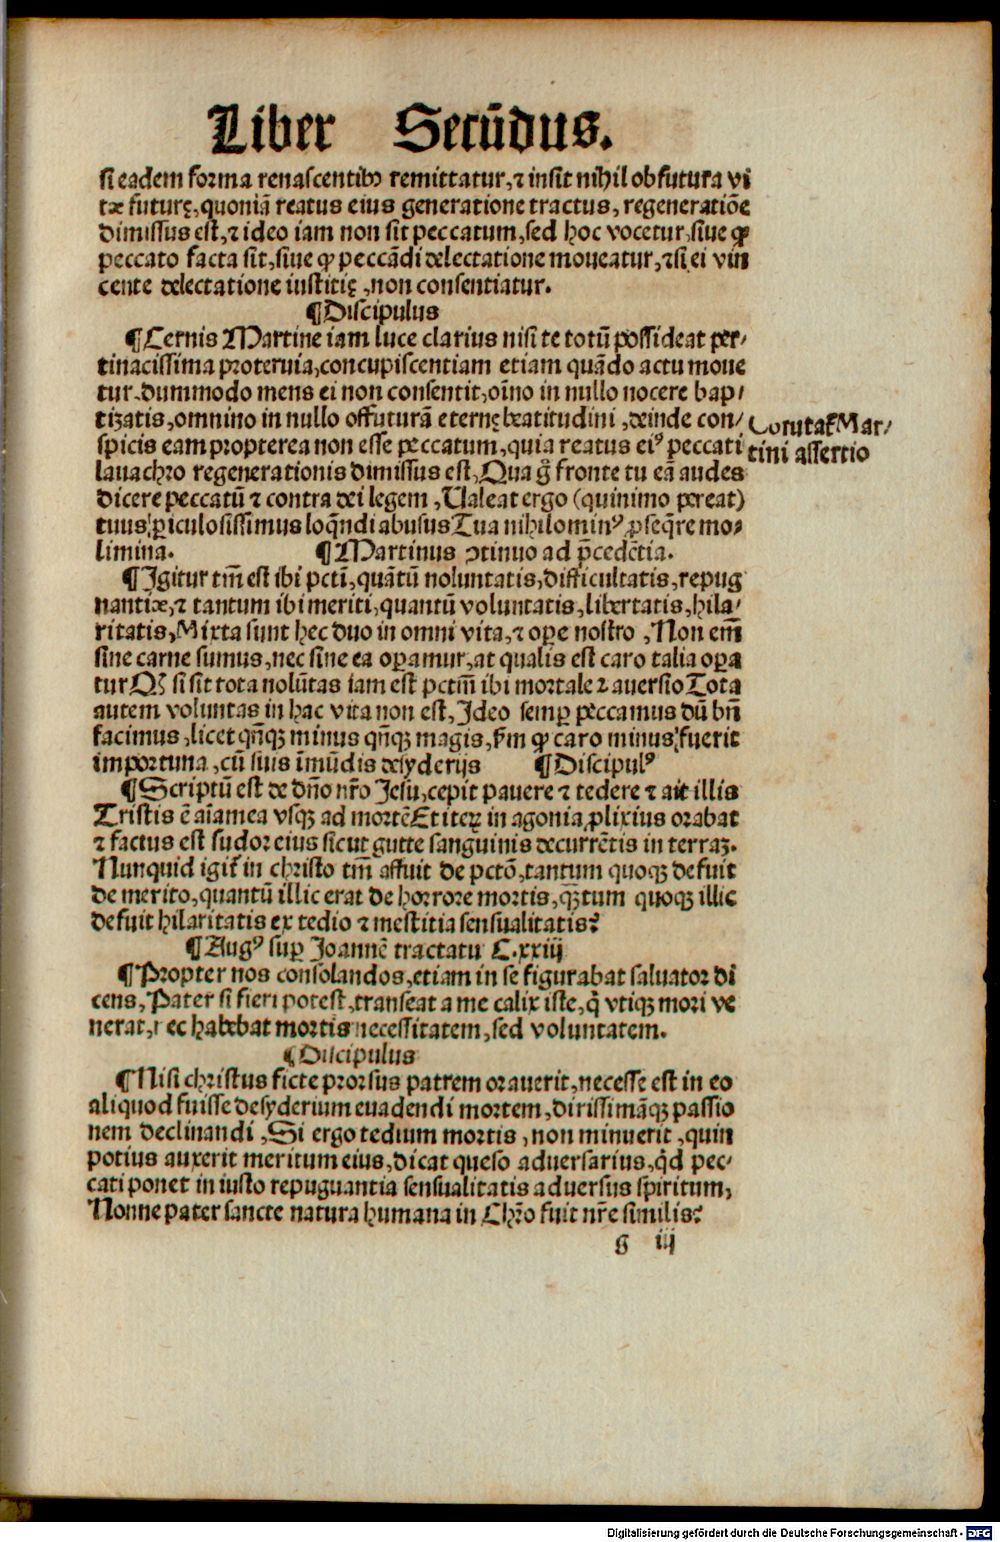 Liber Secūdus.
si eadem forma renascentibꝰ remittatur, ⁊ insit nihil obfutura vi
tæ futurę, quoniā reatus eius generatione tractus, regeneratiōe
dimissus est, ⁊ ideo iam non sit peccatum, sed hoc vocetur, siue ꝙ
peccato facta sit, siue ꝙ peccādi delectatione moueatur, ⁊ si ei vin
cente delectatione iustitię, non consentiatur.
¶Discipulus
¶Cernis Martine iam luce clarius nisi te totū possideat per/
tinacissima proteruia, concupiscentiam etiam quādo actu moue
tur, dummodo mens ei non consentit, oīno in nullo nocere bap/
tizatis, omnino in nullo offuturā eternę beatitudini, deinde con/
spicis eam propterea non esse peccatum, quia reatus eiꝰ peccati
lauachro regenerationis dimissus est, Qua ḡ fronte tu eā audes
dicere peccatū ⁊ contra dei legem, Ualeat ergo (quinimo pereat)
tuus ꝑiculosissimus loq̄ndi abusus Tua nihilominꝰ ꝓseq̄re mo/
limina. ¶Martinus ꝯtinuo ad p̄cedētia.
Cōfutat᷑ Mar/
tini assertio
¶Igitur tm̄ est ibi pctī, quātū noluntatis, difficultatis, repug
nantiæ, ⁊ tantum ibi meriti, quantū voluntatis, libertatis, hila/
ritatis, Mixta sunt hec duo in omni vita, ⁊ oꝑe nostro, Non em̄
sine carne sumus, nec sine ea oꝑamur, at qualis est caro talia oꝑa
tur Qꝫ si sit tota nolūtas iam est pctm̄ ibi mortale ⁊ auersio Tota
autem voluntas in hac vita non est, Ideo semꝑ peccamus dū bn̄
facimus, licet qn̄qꝫ minus qn̄qꝫ magis, ẜm ꝙ caro minus fuerit
importuna, cū suis īmūdis desyderijs ¶Discipulꝰ
¶Scriptū est de dn̄o nr̄o Jesu, cepit pauere ⁊ tedere ⁊ ait illis
Tristis ē aīa mea vsqꝫ ad mortē Et iteꝝ in agonia ꝓlixius orabat
⁊ factus est sudor eius sicut gutte sanguinis decurrētis in terraꝫ.
Nunquid igit᷑ in christo tm̄ affuit de pctō, tantum quoqꝫ defuit
de merito, quantū illic erat de horrore mortis, quātum quoqꝫ illic
defuit hilaritatis ex tedio ⁊ mestitia sensualitatis?
¶Augꝰ suꝑ Joannē tractatu C.xxiij
¶Propter nos consolandos, etiam in se figurabat saluator di
cens, Pater si fieri potest, transeat a me calix iste, q̄ vtiqꝫ mori ve
nerat, nec habebat mortis necessitatem, sed voluntatem.
¶Discipulus
¶Nisi christus ficte prorsus patrem orauerit, necesse est in eo
aliquod fuisse desyderium euadendi mortem, dirissimāqꝫ passio
nem declinandi, Si ergo tedium mortis, non minuerit, quin
potius auxerit meritum eius, dicat queso aduersarius, qd̄ pec/
cati ponet in iusto repugnantia sensualitatis aduersus spiritum,
Nonne pater sancte natura humana in Chr̄o fuit nr̄e similis?
g iij
Digitalisierung gefördert durch die Deutsche Forschungsgemeinschaft - DFG